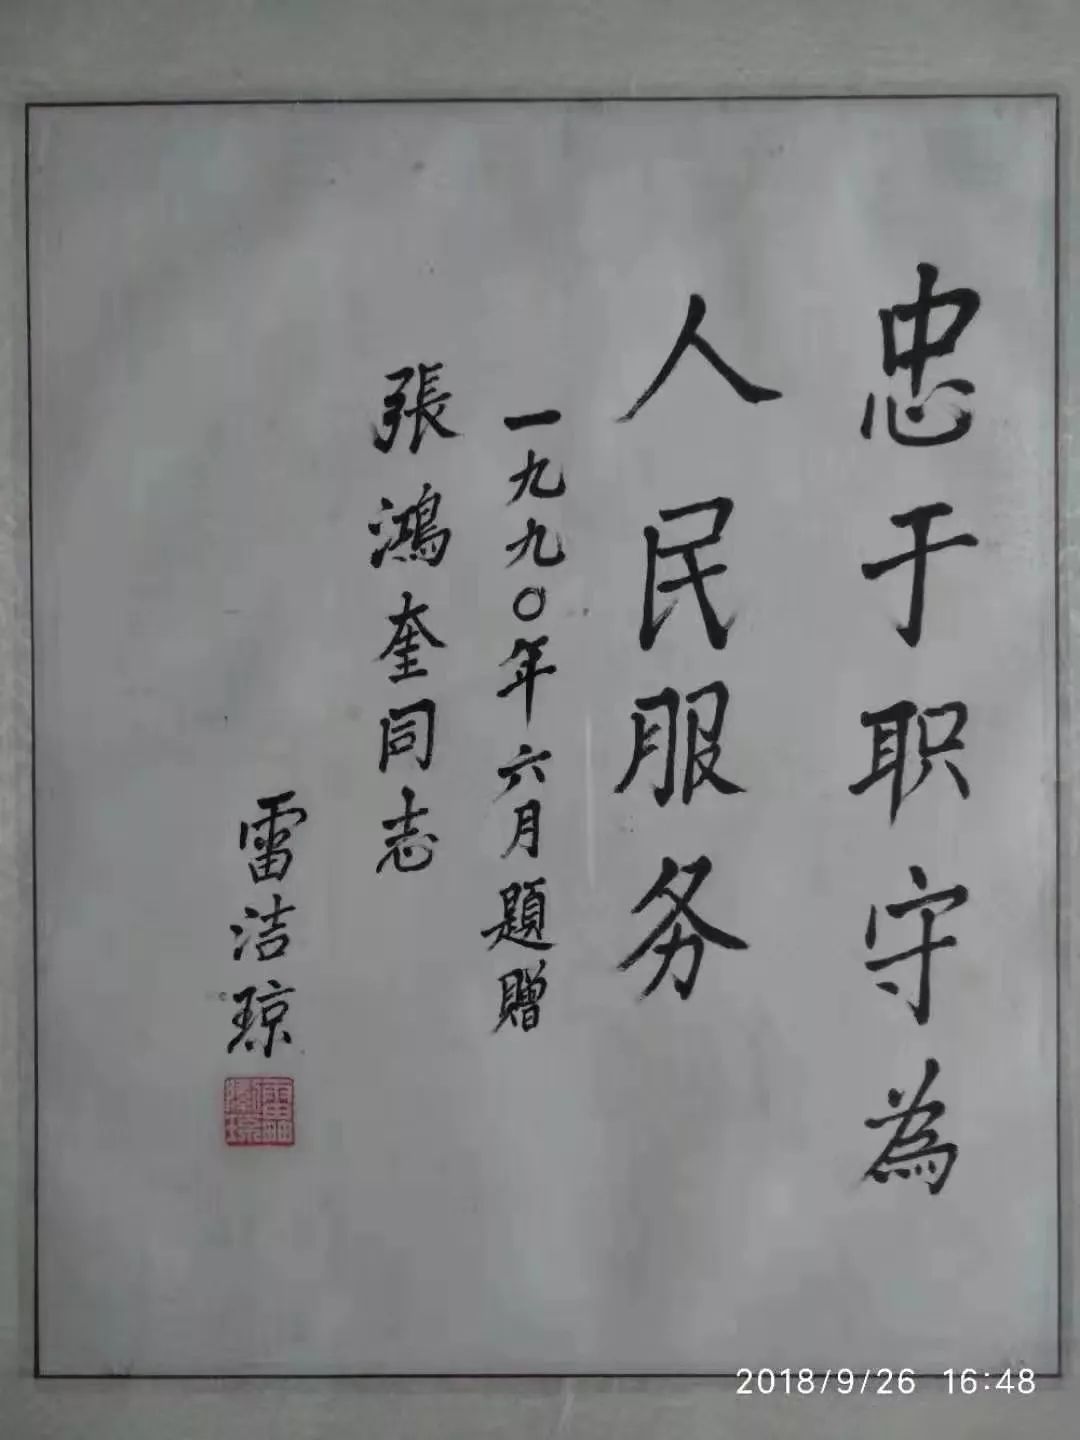 忠于职守为
人民服务
一九九〇年六月题赠
張鴻奎同志
雷洁琼
2018/9/26 16:48